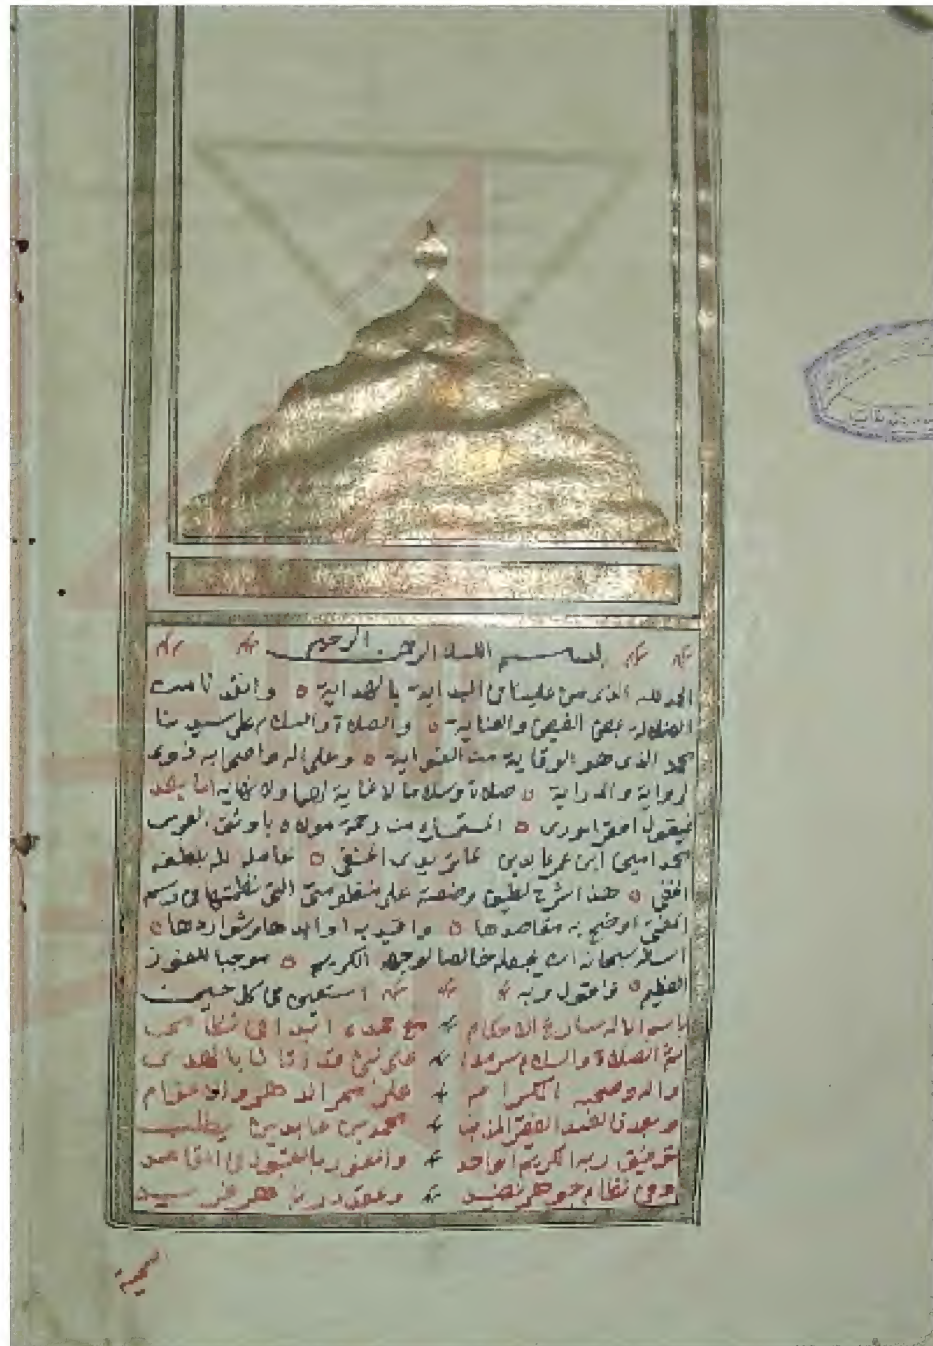 بسم الله الرحمن الرحيم
الحمد لله الذي من علينا في البداية بالهداية وانقذنا من
الضلالة بمحض الفيض والعناية والصلاة والسلام على سيدنا
محمد الذي هو الوقاية من الغواية وعلى اله واصحابه ذوي
لرواية والدراية صلاة وسلاما لا غاية لهما ولا نهاية اما بعد
فيقول افقر الورى المستمسك من رحمة مولاه باوثق العرى
محمد امين ابن عمر عابدين الماتريدي الحنفي عامله الله بلطفه
الخفي هذا شرح لطيف وضعته على منظومتي التي نظمتها في رسم
المفتي اوضح به مقاصدها واقيد به اوابدها وشواردها
اسأله سبحانه ان يجعله خالصا لوجهه الكريم موجبا للفوز
العظيم فاقول وبه استعين في كل حين
باسم الاله شارع الاحكام مع حمده ابدأ في نظامي
ثم الصلاة والسلام سرمدا على نبي قد اتانا بالهدى
واله وصحبه الكرام على ممر الدهر والاعوام
وبعد فالعبد الفقير المذنب محمد بن عابدين يطلب
توفيق ربه الكريم الواحد والفوز بالقبول في المقاصد
وفي نظام جوهر نضيد وعقد در باهر فريد
سميته